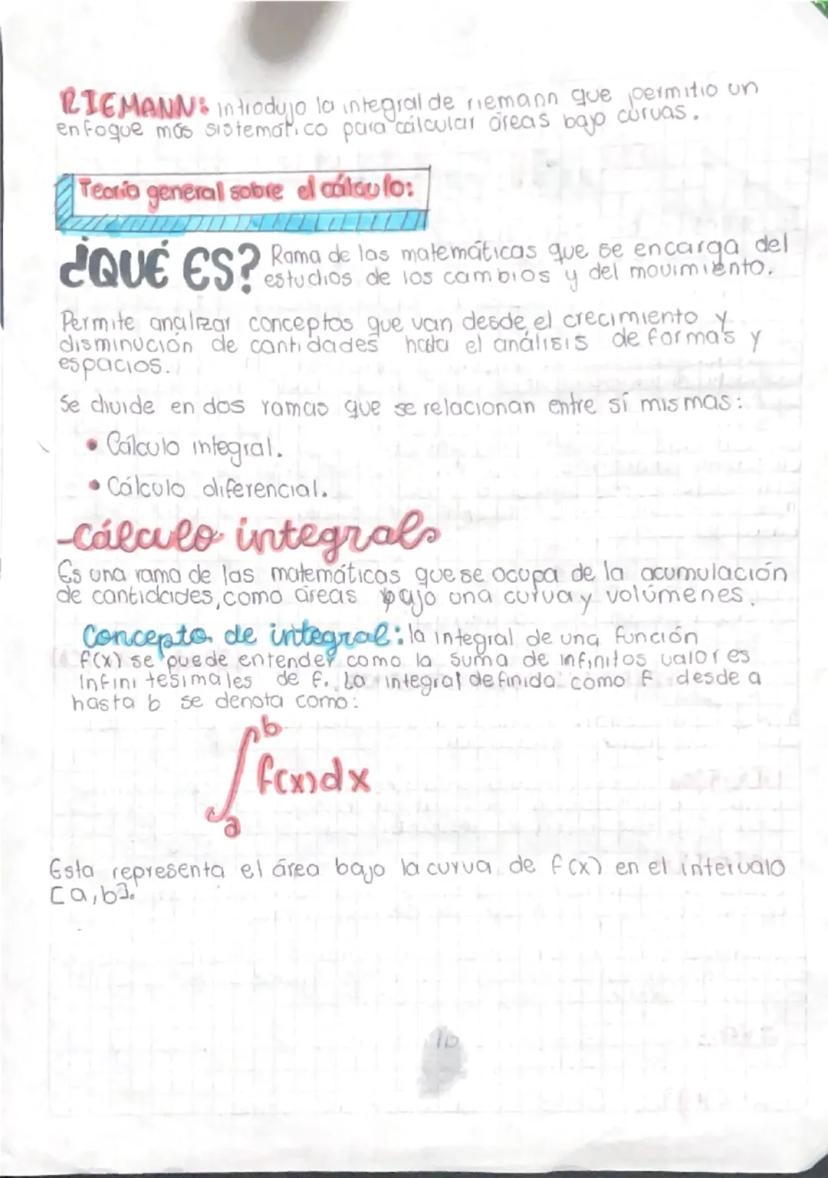 RIEMANN: introdujo la integral de riemann que permitio un
enfoque más sistemático para cálcular áreas bajo curvas.
Teoría general sobre el cálculo:
¿QUÉ ES? Rama de las matemáticas que se encarga del
estudios de los cambios y del movimiento.
Permite analizar conceptos que van desde el crecimiento y
disminución de cantidades hasta el análisis de formas y
espacios.
Se divide en dos ramas que se relacionan entre sí mismas:
• Cálculo integral.
• Cálculo diferencial.
-Cálculo integral
Es una rama de las matemáticas que se ocupa de la acumulación
de cantidades, como áreas bajo una curva y volúmenes.
Concepto de integral: la integral de una función
f(x) se puede entender como la suma de infinitos valores
infinitesimales de f. La integral definida como f desde a
hasta b se denota como:
∫ₐᵇ f(x)dx
Esta representa el área bajo la curva de f(x) en el intervalo
[a,b].
10